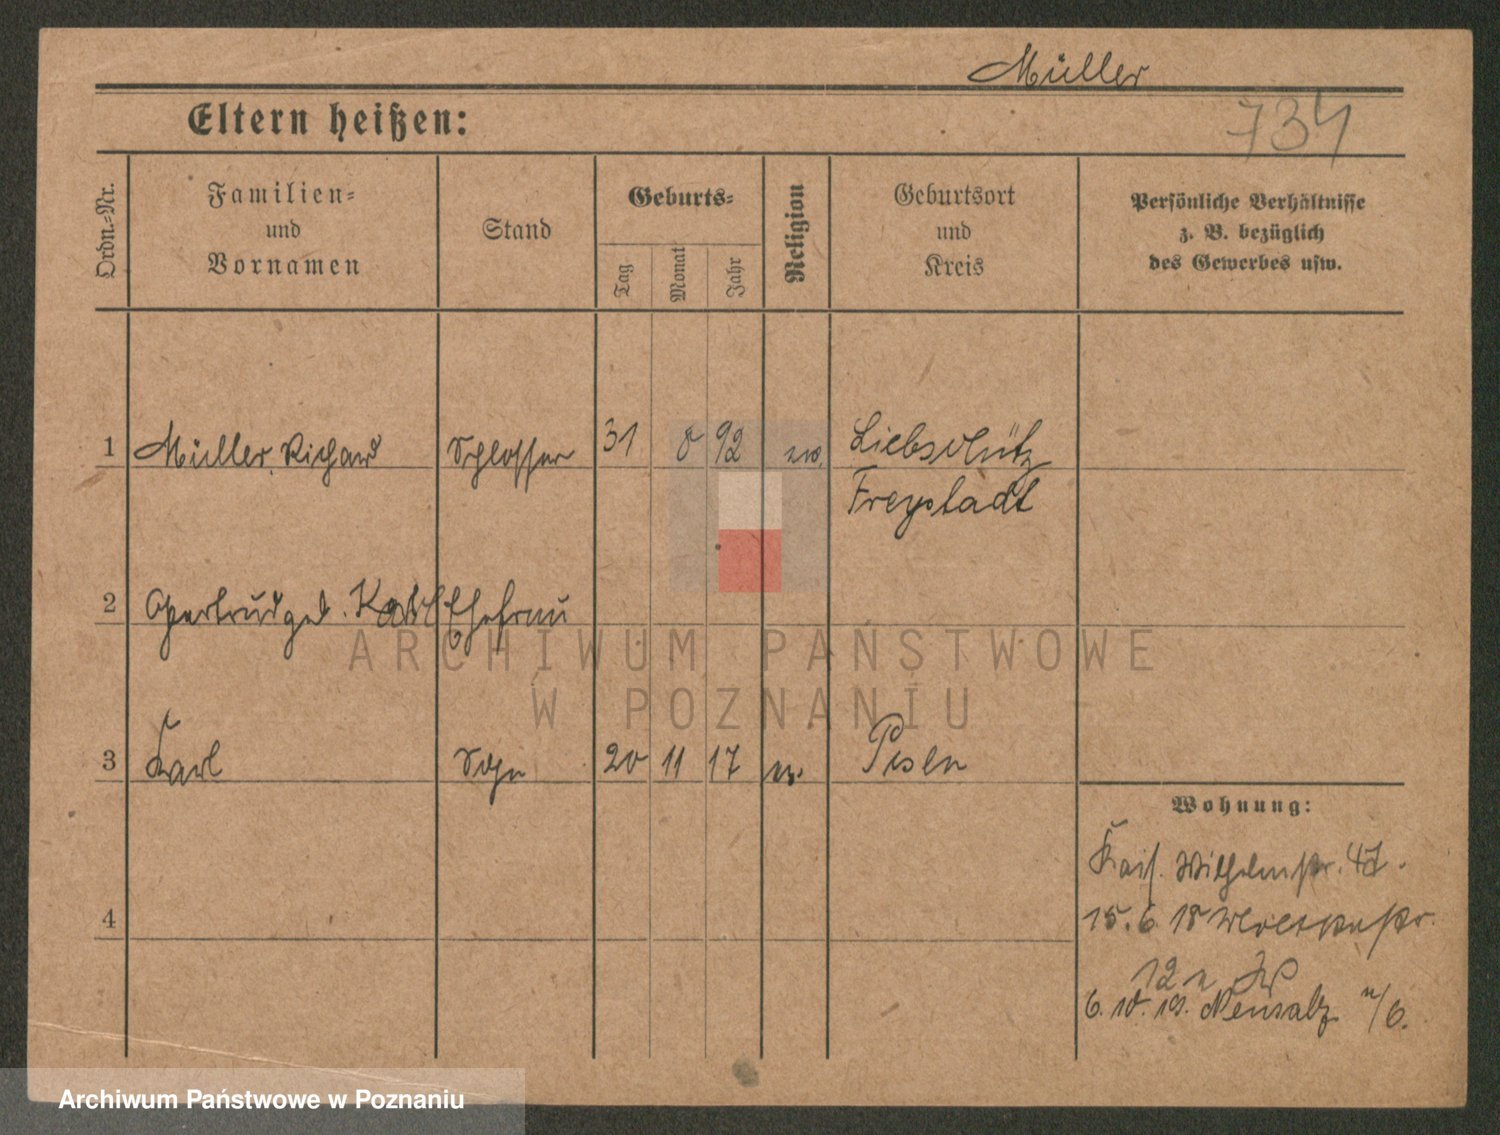 Müller
Eltern heißen:
734
Ordn.-Nr.
Familien-
und
Vornamen
Stand
Geburts-
Tag
Monat
Jahr
Religion
Geburtsort
und
Kreis
Persönliche Verhältnisse
z. B. bezüglich
des Gewerbes usw.
1 Müller Richard Schlosser 31 8 92 ev. Liebschütz
Freystadt
2 Gertrud geb. Ehefrau
3 Karl Sohn 20 11 17 ev. Posen
Wohnung:
Kais. Wilhelmstr. 47.
15. 6 18
4
12
6. 10. 19. Neusalz /6.
ARCHIWUM PAŃSTWOWE
W POZNANIU
Archiwum Państwowe w Poznaniu